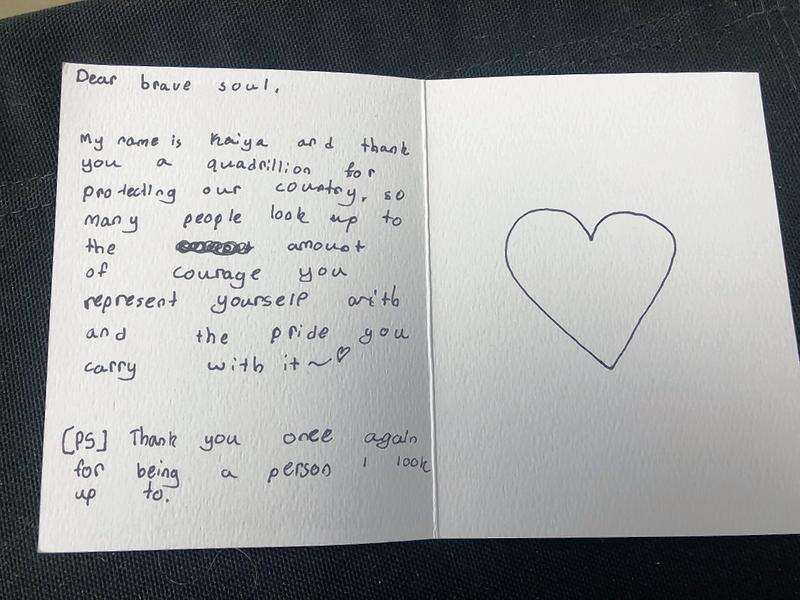 Dear brave soul,
My name is Kaiya and thank
you a quadrillion for
protecting our country, so
many people look up to
the amount
of courage you
represent yourself with
and the pride you
carry with it ~♡
[PS] Thank you once again
for being a person I look
up to.